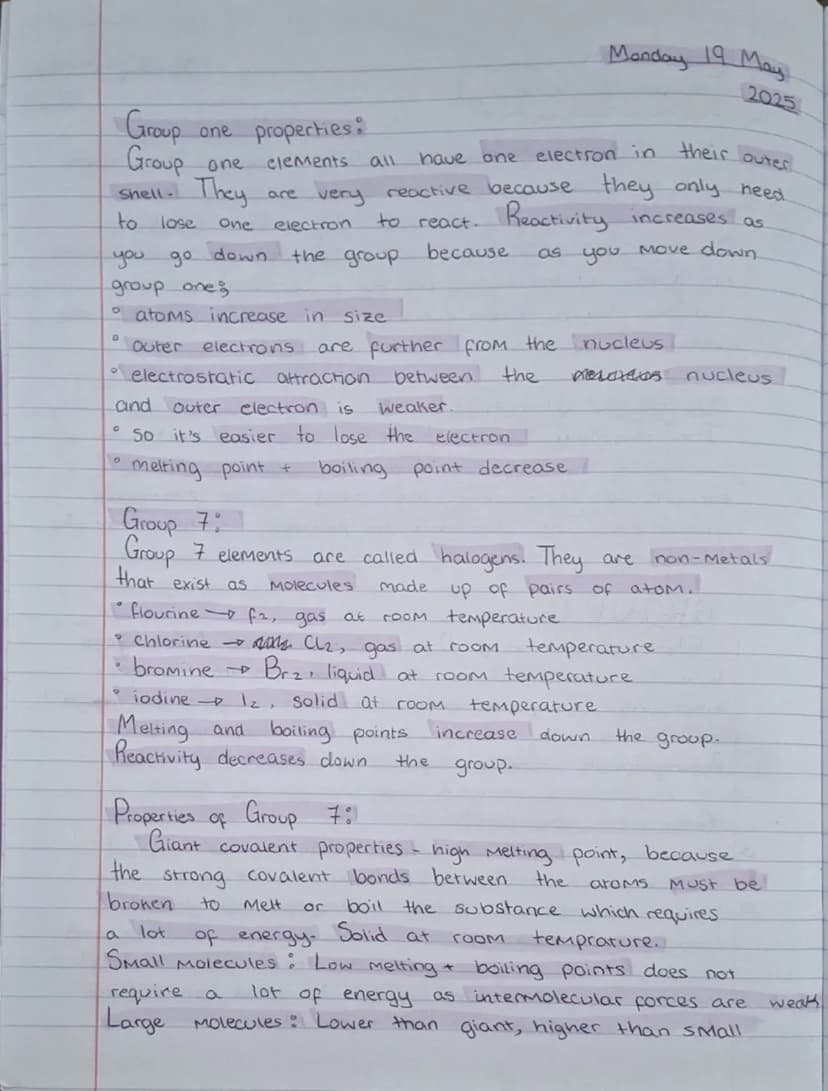 Monday 19 May
2025
Group one properties:
Group one elements all have one electron in their outer
shell. They are very reactive because they only need
to lose one electron to react. Reactivity increases as
you go down the group because as you move down
group one;
° atoms increase in size
° outer electrons are further from the nucleus
° electrostatic attraction between the nucleus
and outer electron is weaker.
° so it's easier to lose the electron
° melting point + boiling point decrease
Group 7:
Group 7 elements are called halogens. They are non-metals
that exist as molecules made up of pairs of atom.
° flourine → f₂, gas at room temperature
° chlorine → Cl₂, gas at room temperature
° bromine → Br₂, liquid at room temperature
° iodine → I₂, solid at room temperature
Melting and boiling points increase down the group.
Reactivity decreases down the group.
Properties of Group 7:
Giant covalent properties - high melting point, because
the strong covalent bonds between the atoms must be
broken to melt or boil the substance which requires
a lot of energy. Solid at room temprature.
Small molecules: Low melting + boiling points does not
require a lot of energy as intermolecular forces are weak
Large molecules: Lower than giant, higher than small